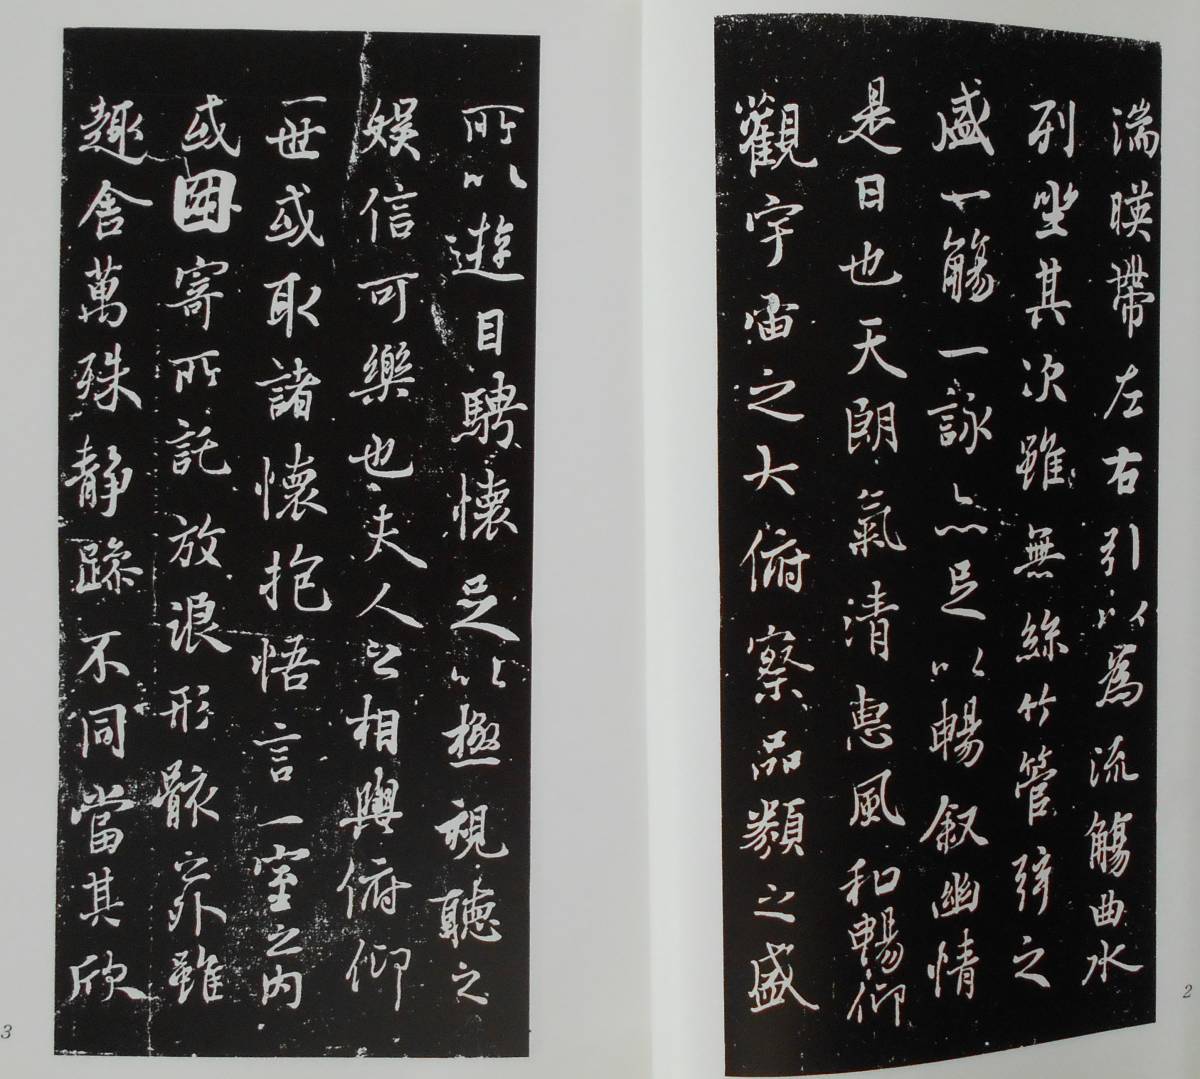 湍暎帶左右引以為流觴曲水
列坐其次雖無絲竹管弦之
盛一觴一詠亦足以暢敘幽情
是日也天朗氣清惠風和暢仰
觀宇宙之大俯察品類之盛
2
所以遊目騁懷足以極視聽之
娛信可樂也夫人之相與俯仰
一世或取諸懷抱悟言一室之內
或因寄所託放浪形骸之外雖
趣舍萬殊靜躁不同當其欣
3